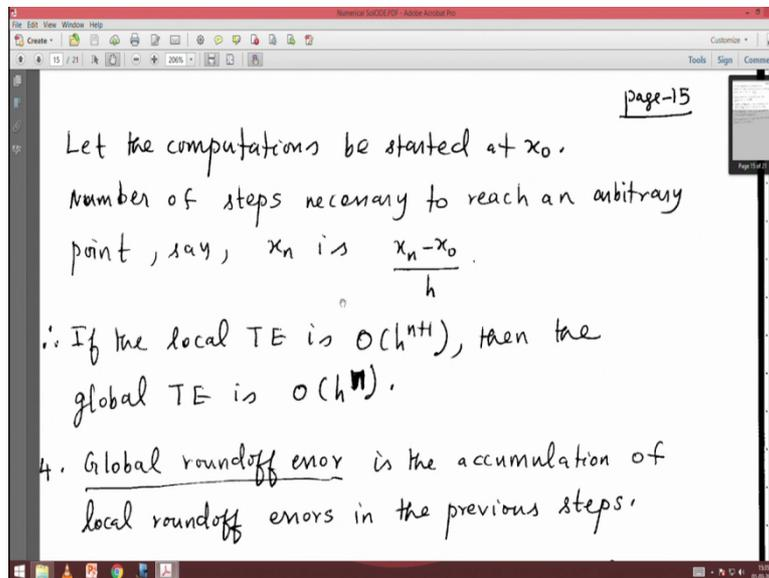 Numerical SolODE.PDF - Adobe Acrobat Pro
File Edit View Window Help
Create
Customize
15 / 21
206%
Tools Sign Comme
page-15
Page 15 of 21
Let the computations be started at x₀.
Number of steps necessary to reach an arbitrary
point, say, xₙ is (xₙ - x₀)/h.
∴ If the local TE is O(hⁿ⁺¹), then the
global TE is O(hⁿ).
4. Global roundoff error is the accumulation of
local roundoff errors in the previous steps.